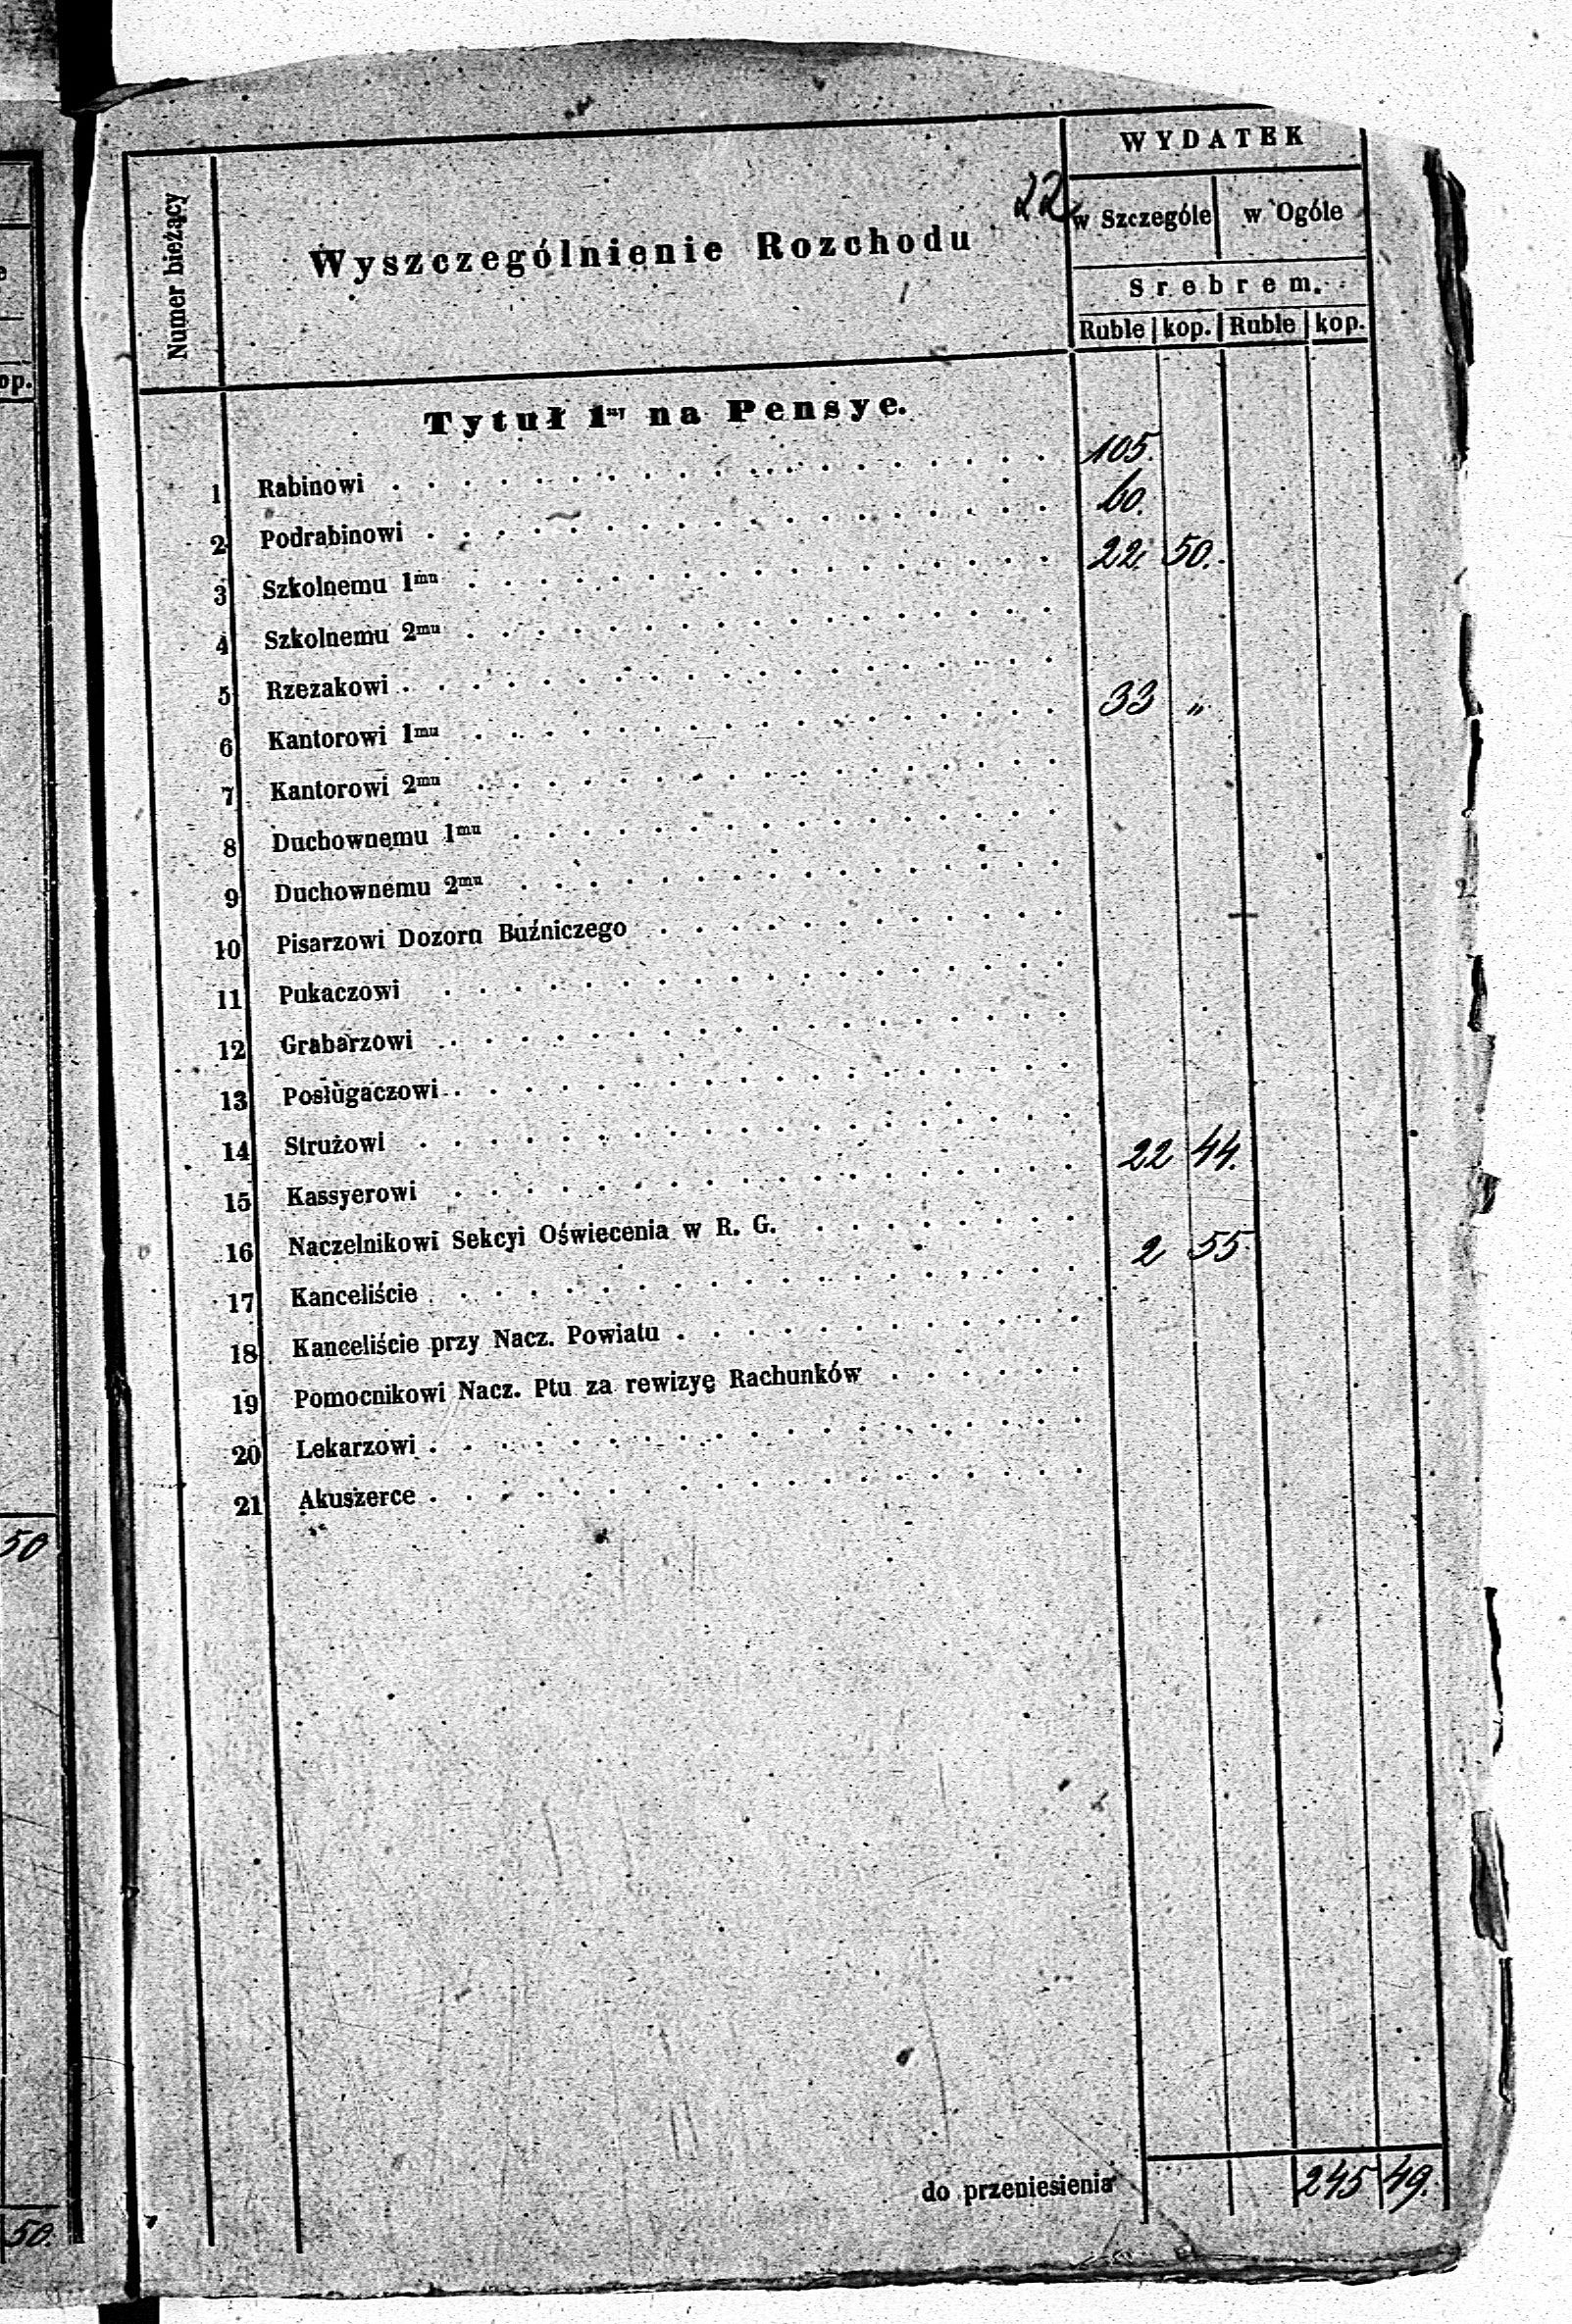 WYDATEK
22
w Szczególe w Ogóle
Numer bieżący
Wyszczególnienie Rozchodu
Srebrem.
Ruble kop. Ruble kop.
op.
Tytuł 1szy na Pensye.
1 Rabinowi . . . . . . . . . . 105.
2 Podrabinowi . . . . . . . . . . 60.
3 Szkolnemu 1mu . . . . . . . . . . 22. 50.
4 Szkolnemu 2mu . . . . . . . . . .
5 Rzezakowi . . . . . . . . . .
6 Kantorowi 1mu . . . . . . . . . . 33 „
7 Kantorowi 2mu . . . . . . . . . .
8 Duchownemu 1mu . . . . . . . . . .
9 Duchownemu 2mu . . . . . . . . . .
10 Pisarzowi Dozoru Buźniczego . . . . . . . . . .
11 Pukaczowi . . . . . . . . . .
12 Grabarzowi . . . . . . . . . .
13 Posługaczowi . . . . . . . . . .
14 Strużowi . . . . . . . . . .
15 Kassyerowi . . . . . . . . . . 22 44.
16 Naczelnikowi Sekcyi Oświecenia w R. G. . . . . . . . .
17 Kanceliście . . . . . . . . . . 2 55.
18 Kanceliście przy Nacz. Powiatu . . . . . . . . . .
19 Pomocnikowi Nacz. Ptu za rewizyę Rachunków . . . . . .
20 Lekarzowi . . . . . . . . . .
21 Akuszerce . . . . . . . . . .
50
do przeniesienia 245 49.
50.